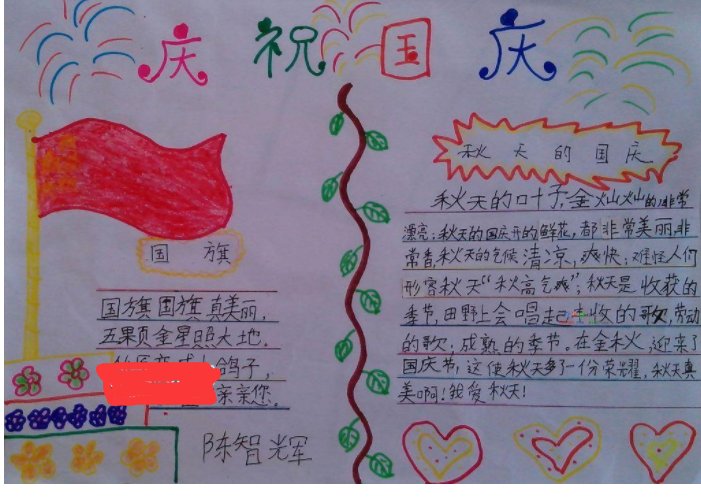 庆祝国庆
国旗
国旗国旗真美丽，
五果页金星照大地，
鸽子，
亲亲您。
陈智光军
秋天的国庆
秋天的叶子，金灿灿的，非常
漂亮；秋天的国庆开的鲜花，都非常美丽，非
常香，秋天的气候清凉，爽快；难怪人们
形容秋天“秋高气爽”；秋天是收获的
季节，田野上会唱起丰收的歌，劳动
的歌；成熟的季节。在金秋，迎来了
国庆节，这使秋天多了一份荣耀，秋天真
美啊！我爱秋天！